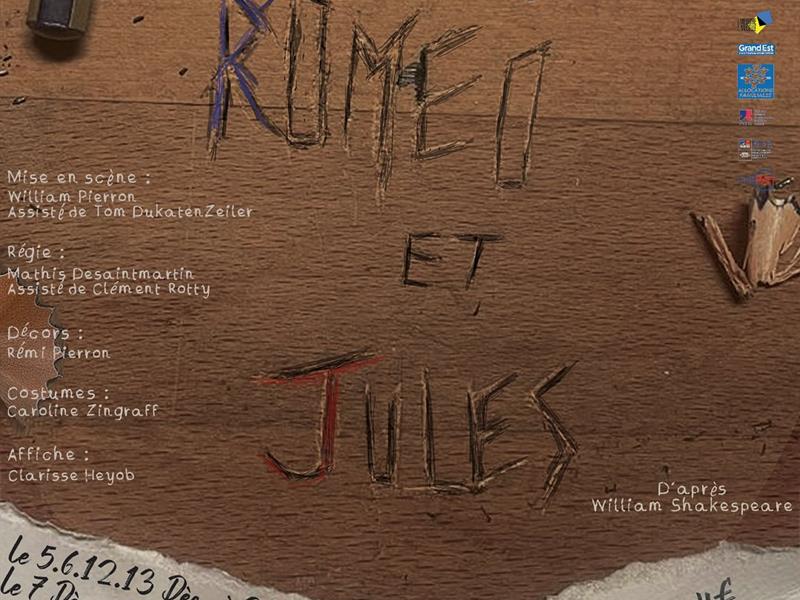 ROMEO
Grand Est
ALLOCATIONS
FAMILIALES
Mise en scène :
William Pierron
Assisté de Tom DukatenZeiler
ET
Régie :
Mathis Desaintmartin
Assisté de Clément Rotty
Décors :
Rémi Pierron
JULES
Costumes :
Caroline Zingraff
Affiche :
Clarisse Heyob
D'après
William Shakespeare
le 5.6.12.13
le 7